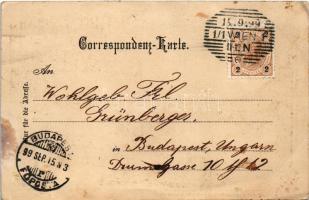 15.9.99
1/1 WIEN
Correspondenz-Karte.
2 2
An
Wohlgeb Frl.
Grünberger.
in Budapest, Ungarn
gasse 10
Nur für die Adresse.
BUDAPEST
99 SEP. 15 N 3